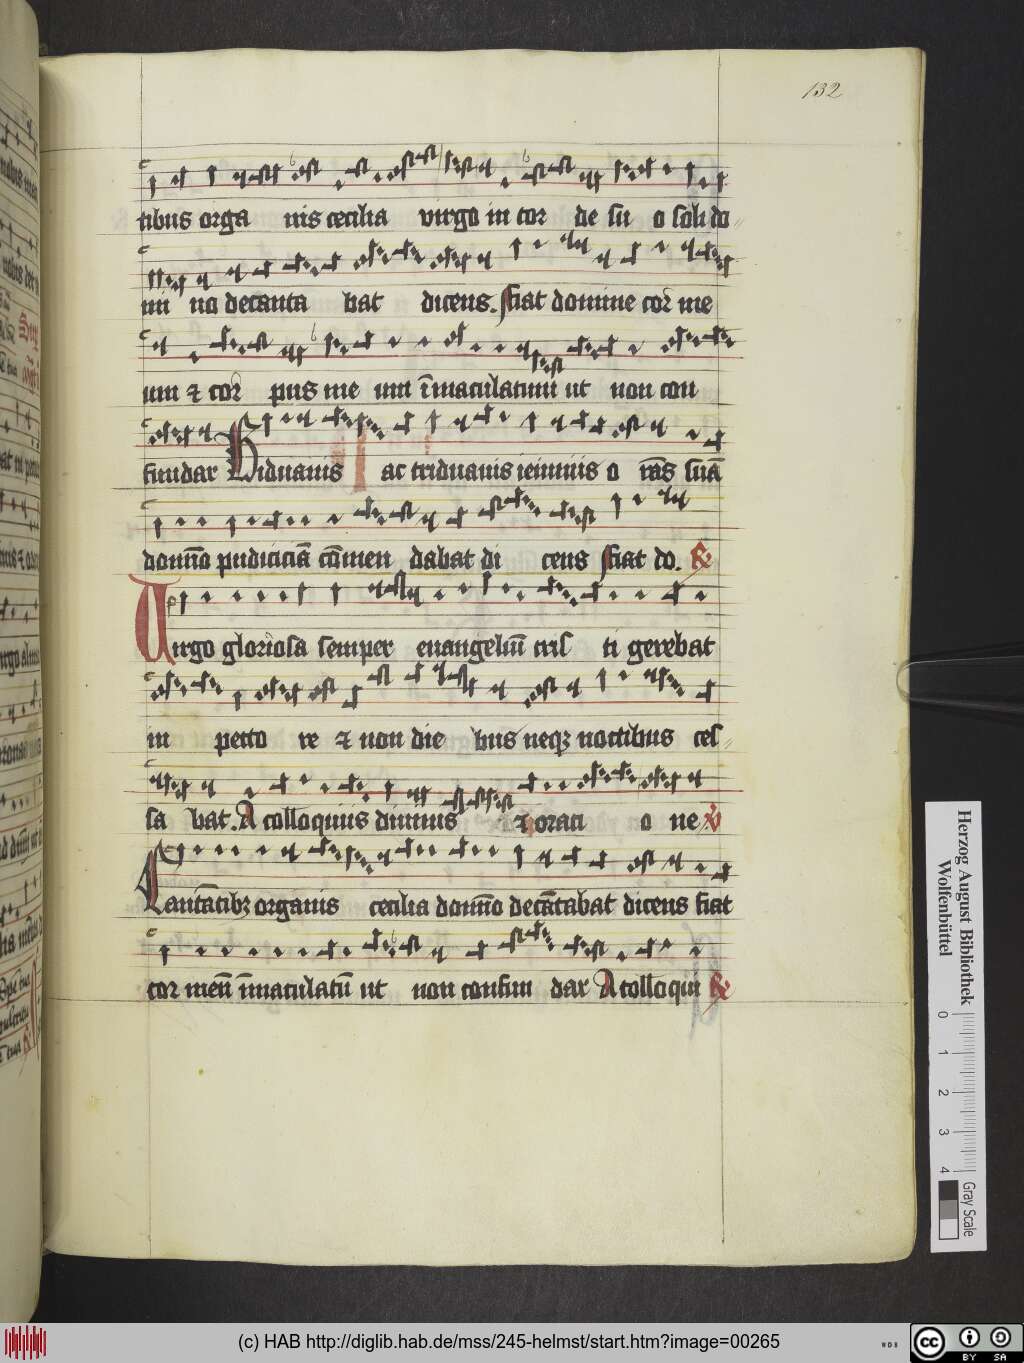 132
tibus orga nis cecilia virgo in cor de su o soli do
mi no decanta bat dicens. fiat domine cor me
um ⁊ cor pus me um īmaculatum ut non con
fundar Biduanis ac triduanis ieiuniis o rās suā
domīo pudiciciā cōmen dabat di cens fiat do.
Virgo gloriosa semper euangeliū cris ti gerebat
in pecto re ⁊ non die bus neqꝫ noctibus ces
sa bat. A colloquiis diuinis ⁊ oraci o ne
Cantātibꝫ organis cecilia domīo decātabat dicens fiat
cor meū īmaculatū ut non confun dar A colloqui
Herzog August Bibliothek
Wolfenbüttel
0 1 2 3 4
Gray Scale
(c) HAB http://diglib.hab.de/mss/245-helmst/start.htm?image=00265
WDB
cc BY SA